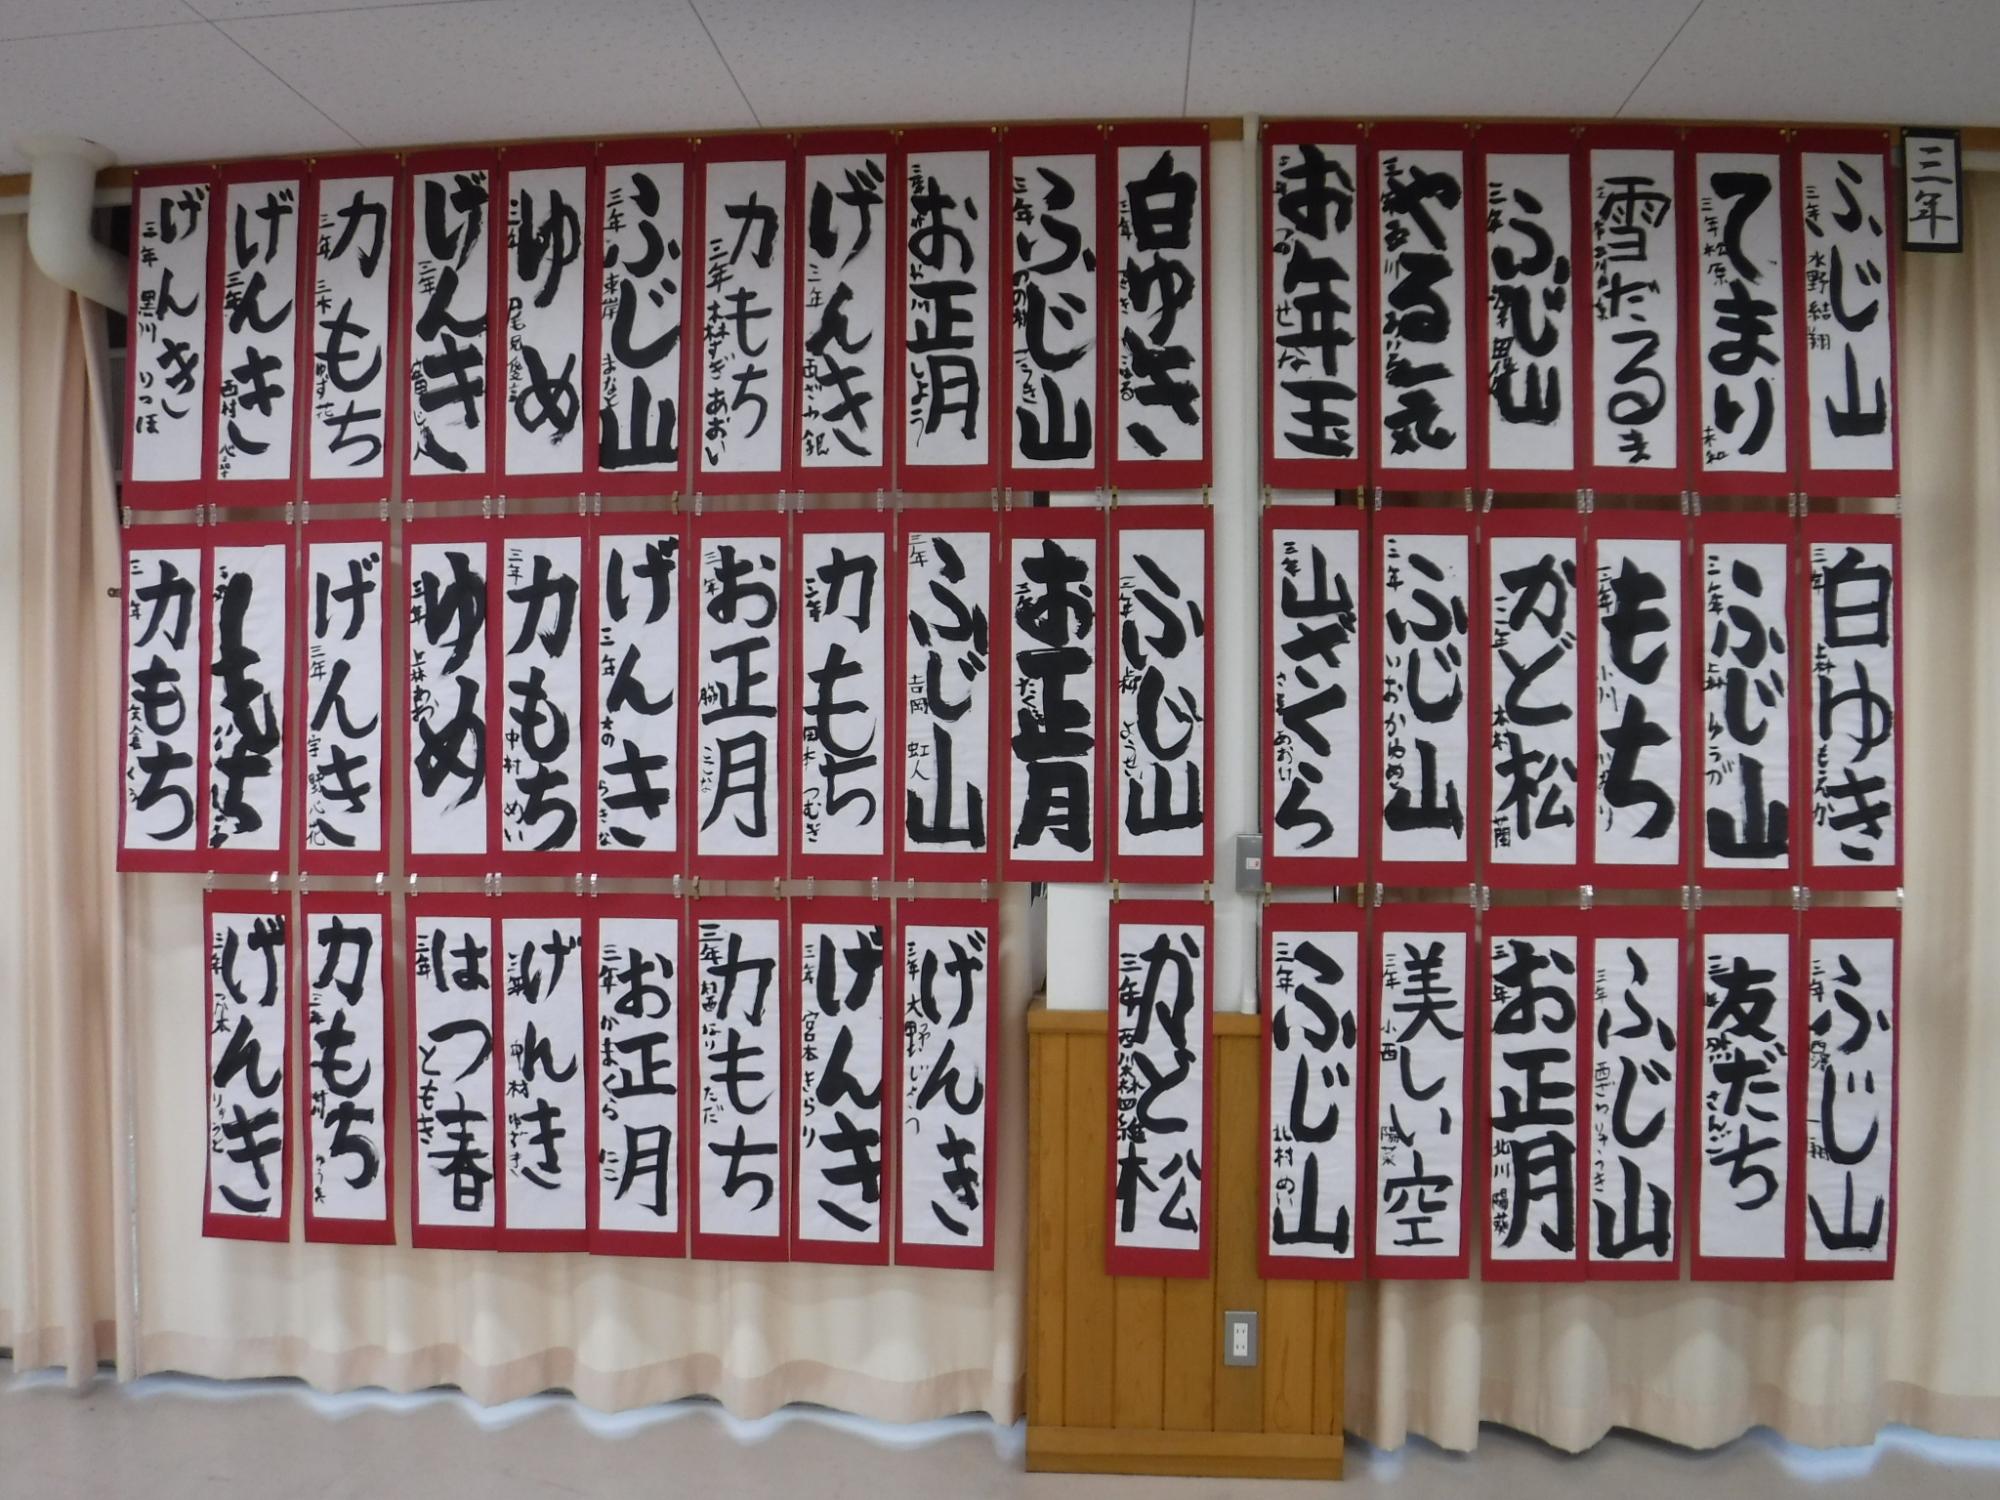 三年
ふじ山
三年 水野 結翔
てまり
三年 松原
雪だるま
ふじ山
三年
やる気
お年玉
せな
白ゆき
三年
ふじ山
三年
お正月
しょう
げんき
三年 西ざわ 銀
力もち
三年 すぎ あおい
ふじ山
三年 東岸 まなと
ゆめ
三年
げんき
三年
力もち
三年 三木 ゆず花
げんき
三年 西村
げんき
三年 黒川 りつほ
白ゆき
三年 上村 ももか
ふじ山
三年 上村 りゅうが
もち
三年 小川
かど松
三年 木村 蘭
ふじ山
三年
山ざくら
三年 あおい
ふじ山
三年 ようせい
お正月
三年
ふじ山
三年 吉岡 虹人
力もち
三年 田本 つむぎ
お正月
三年 脇
げんき
三年 大の らきな
力もち
三年 中村 めい
ゆめ
三年 上林
げんき
三年 宇野 心花
力もち
力もち
三年
ふじ山
三年
友だち
三年 さんご
ふじ山
三年 西ざわ りゅうき
お正月
三年 北川 陽葵
美しい空
三年 小西 陽菜
ふじ山
三年 北村 めい
かど松
三年 西
げんき
三年 大野 じょう
げんき
三年 宮本 きらり
力もち
三年 ただ
お正月
三年 かまくら にこ
げんき
三年 中村 ゆずき
はつ春
三年 ともき
力もち
三年
げんき
三年 りゅうと